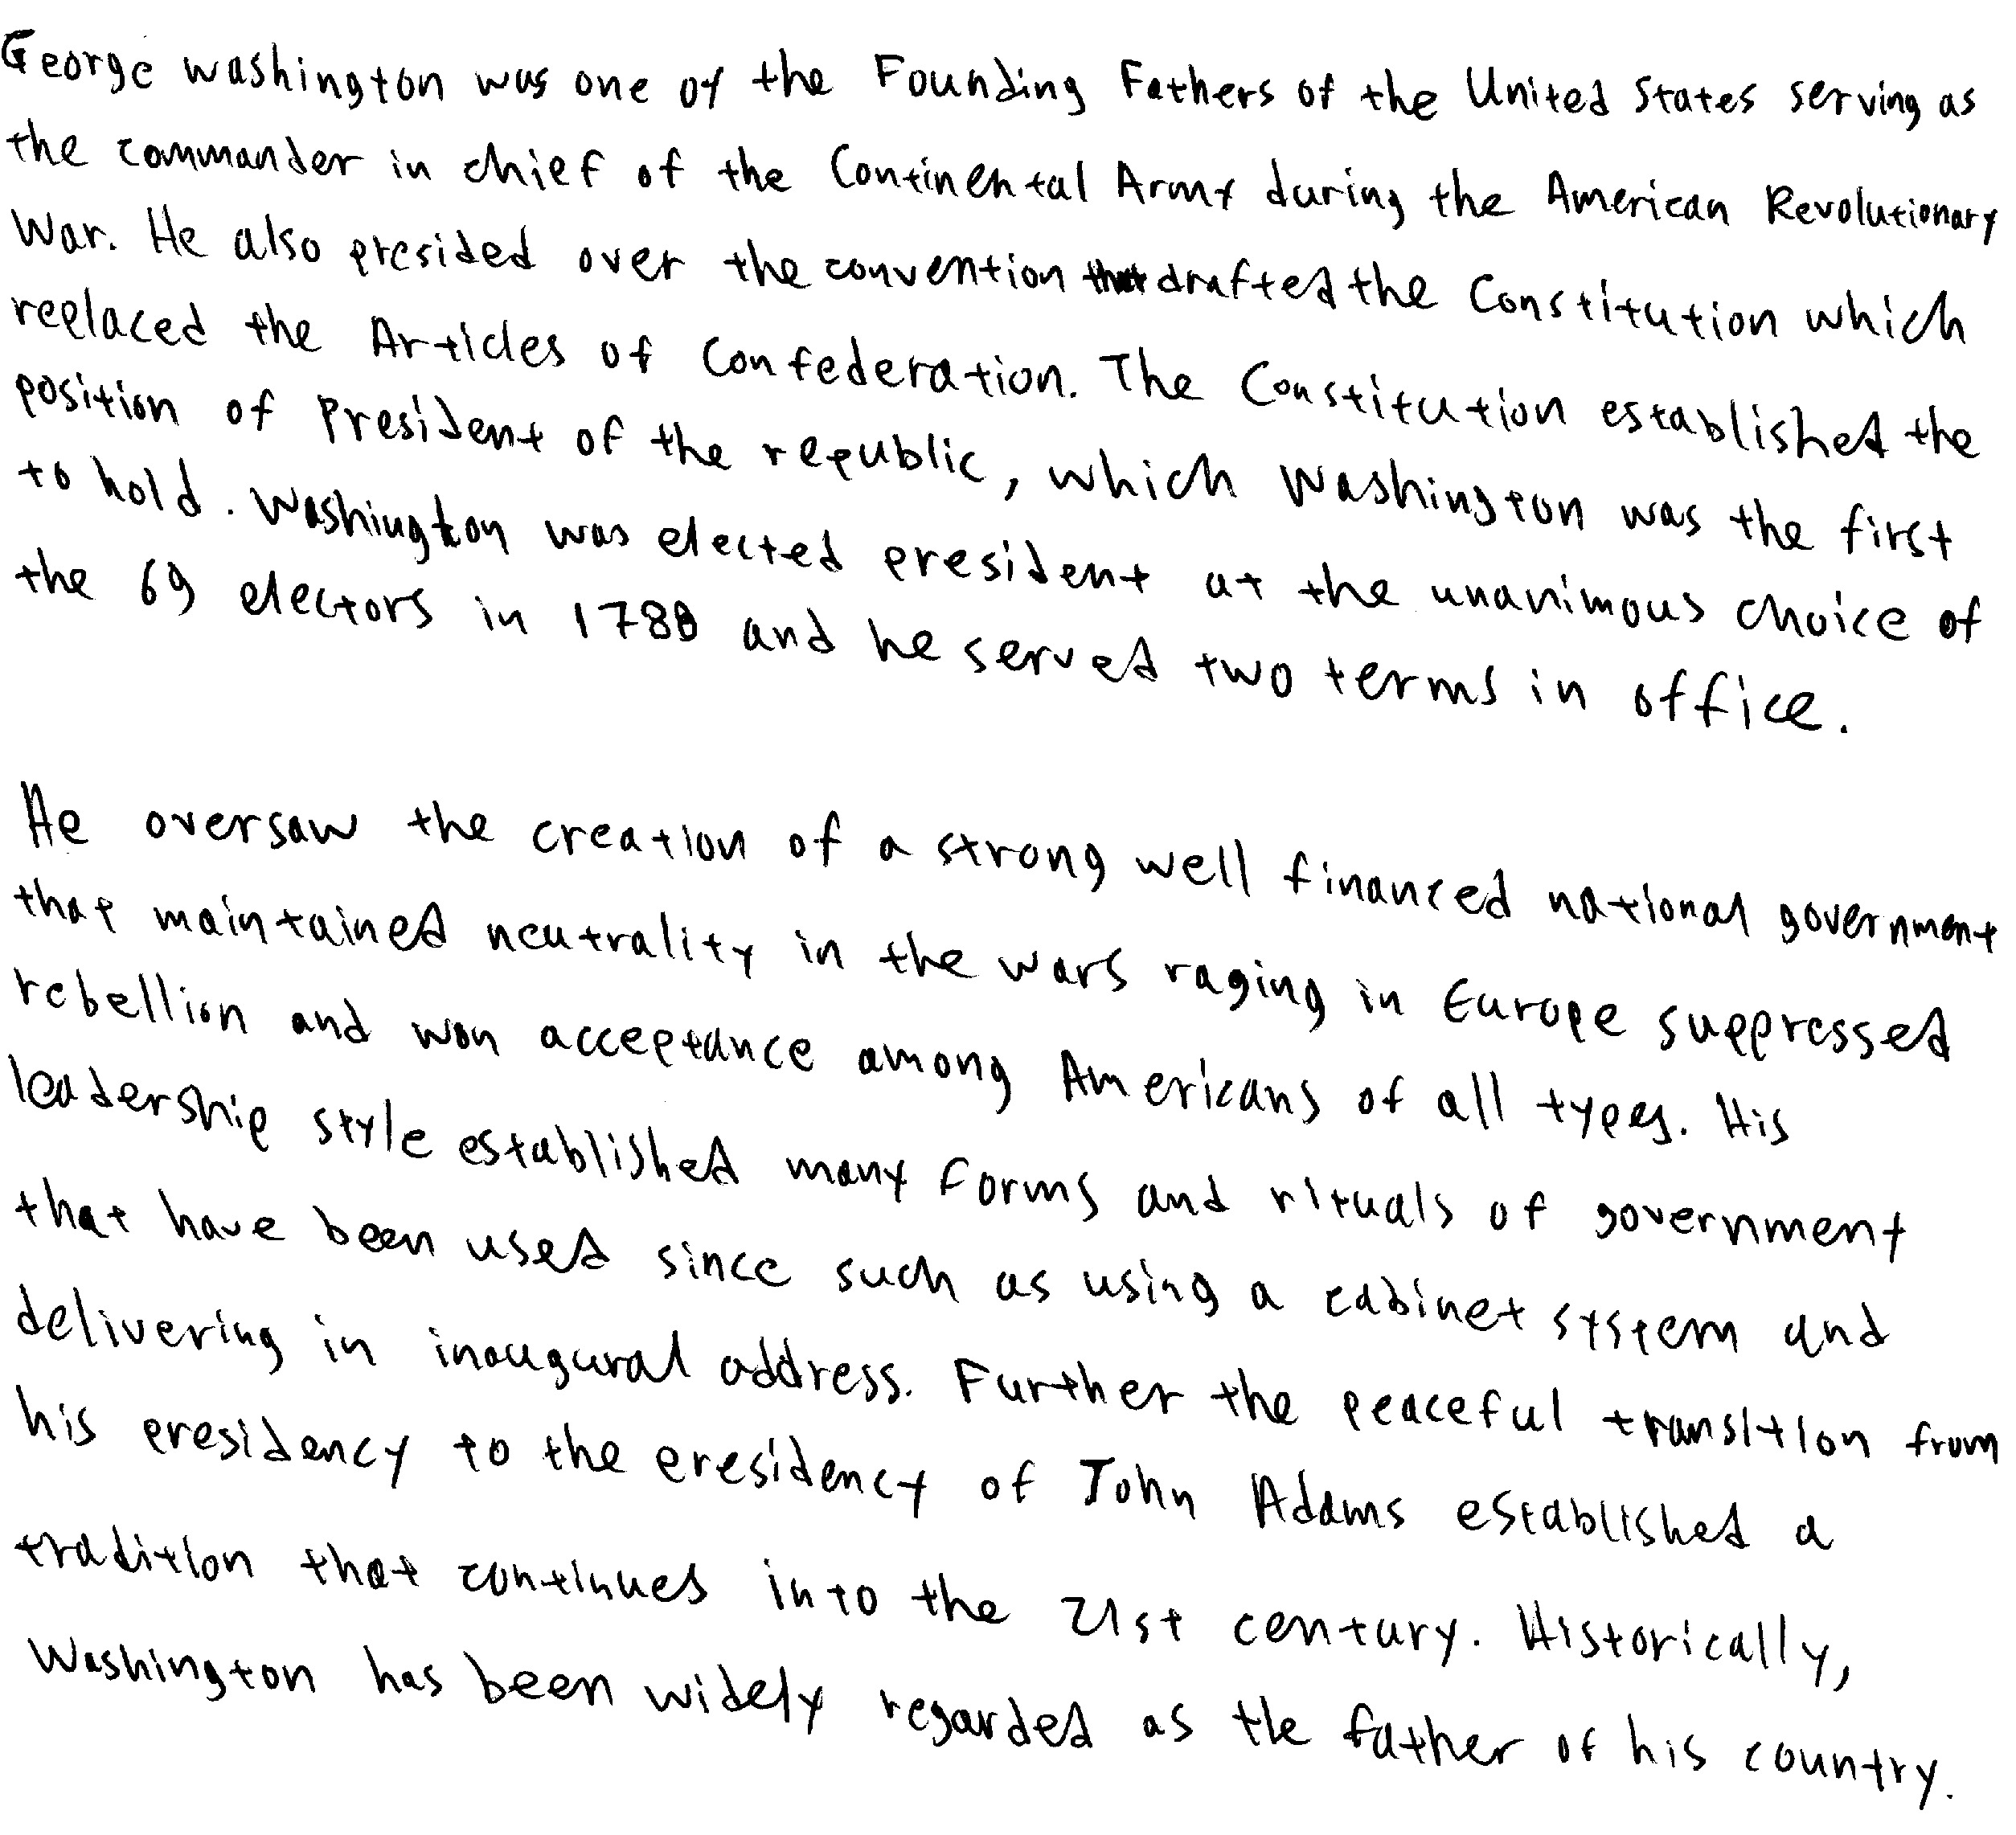 George washington was one of the Founding Fathers of the United States serving as
the commander in chief of the Continental Army during the American Revolutionary
War. He also presided over the convention that drafted the Constitution which
replaced the Articles of Confederation. The Constitution established the
position of President of the republic, which Washington was the first
to hold. Washington was elected president at the unanimous choice of
the 69 electors in 1788 and he served two terms in office.
He oversaw the creation of a strong well financed national government
that maintained neutrality in the wars raging in Europe suppressed
rebellion and won acceptance among Americans of all types. His
leadership style established many forms and rituals of government
that have been used since such as using a cabinet system and
delivering in inaugural address. Further the peaceful transition from
his presidency to the presidency of John Adams established a
tradition that continues into the 21st century. Historically,
Washington has been widely regarded as the father of his country.